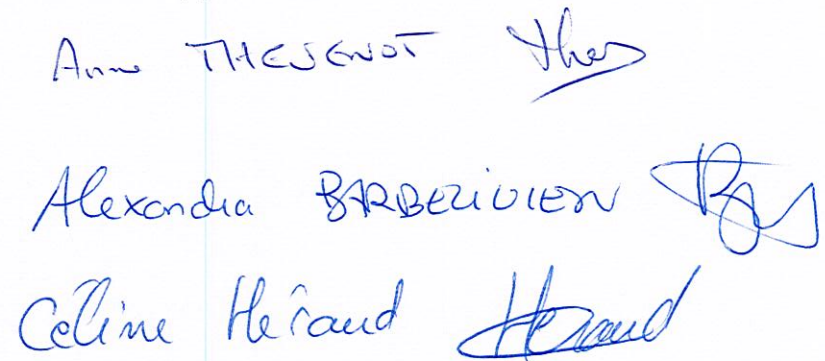 Anne THESENOT Thes
Alexandra BARBELIVIEN
Céline Héraud Héraud